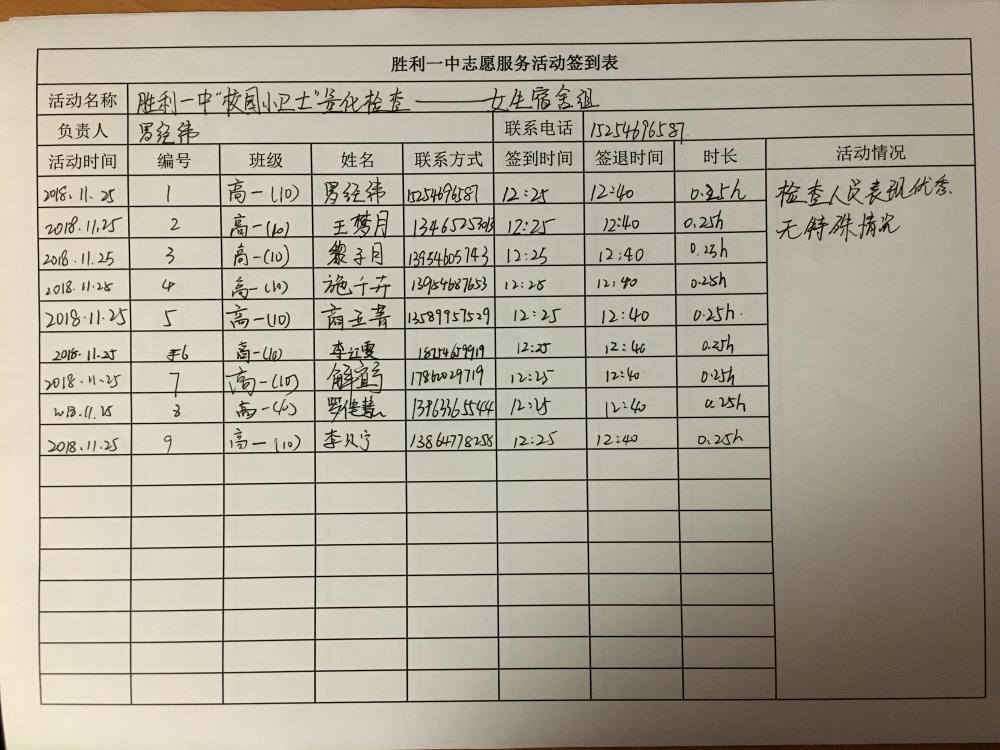 胜利一中志愿服务活动签到表
活动名称 胜利一中“校园小卫士”量化检查——女生宿舍组
负责人 罗经纬 联系电话 15254696587
活动时间 编号 班级 姓名 联系方式 签到时间 签退时间 时长 活动情况
2018.11.25 1 高一(10) 罗经纬 15254696587 12:25 12:40 0.25h 检查人员表现优秀.
2018.11.25 2 高一(10) 王梦月 13465253013 12:25 12:40 0.25h 无特殊情况
2018.11.25 3 高一(10) 黎子月 13954605743 12:25 12:40 0.25h
2018.11.25 4 高一(10) 施千卉 13954687653 12:25 12:40 0.25h
2018.11.25 5 高一(10) 商亚菁 13589957529 12:25 12:40 0.25h.
2018.11.25 6 高一(10) 李红雯 18254659919 12:25 12:40 0.25h
2018.11.25 7 高一(10) 17862029719 12:25 12:40 0.25h
2018.11.25 8 高一(10) 罗佳慧 13963365544 12:25 12:40 0.25h
2018.11.25 9 高一(10) 李贝宁 13864778258 12:25 12:40 0.25h